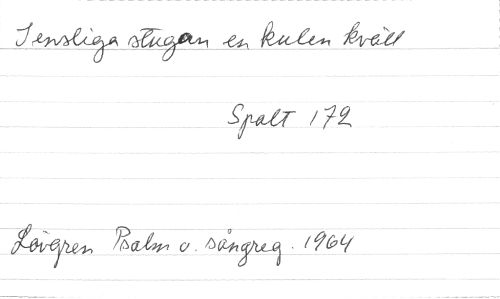 I ensliga stugan en kulen kväll
Spalt 172
Lövgren Psalm o. sångreg. 1964